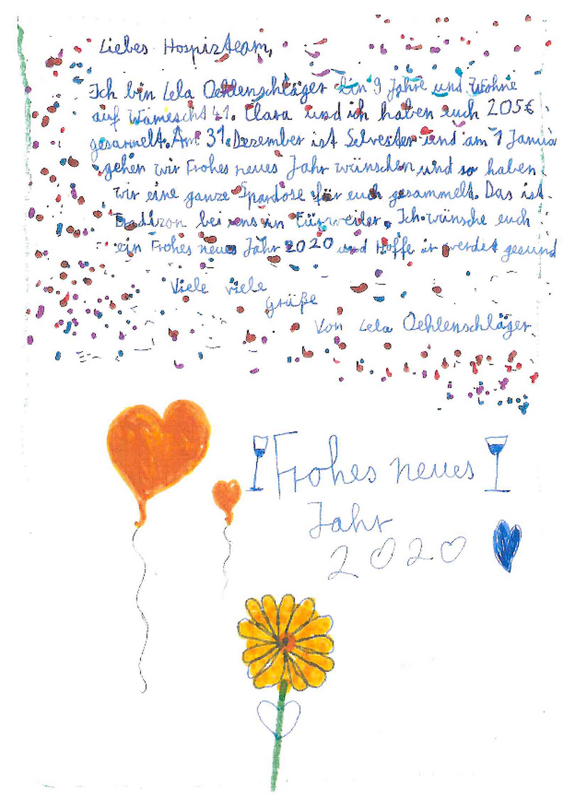 Liebes Hospizteam,
Ich bin Lela Oehlenschläger bin 9 Jahre und Wohne
auf Wämescht 41. Clara und ich haben euch 205€
gesammelt. Am 31. Dezember ist Selvester und am 1 Januar
gehen wir Frohes neues Jahr wünschen und so haben
wir eine ganze Spardose für euch gesammelt. Das ist
bei uns in Fürweiler. Ich wünsche euch
ein Frohes neues Jahr 2020 und Hoffe ir werdet gesund
Viele viele
grüße
Von Lela Oehlenschläger.
Frohes neues
Jahr
2020